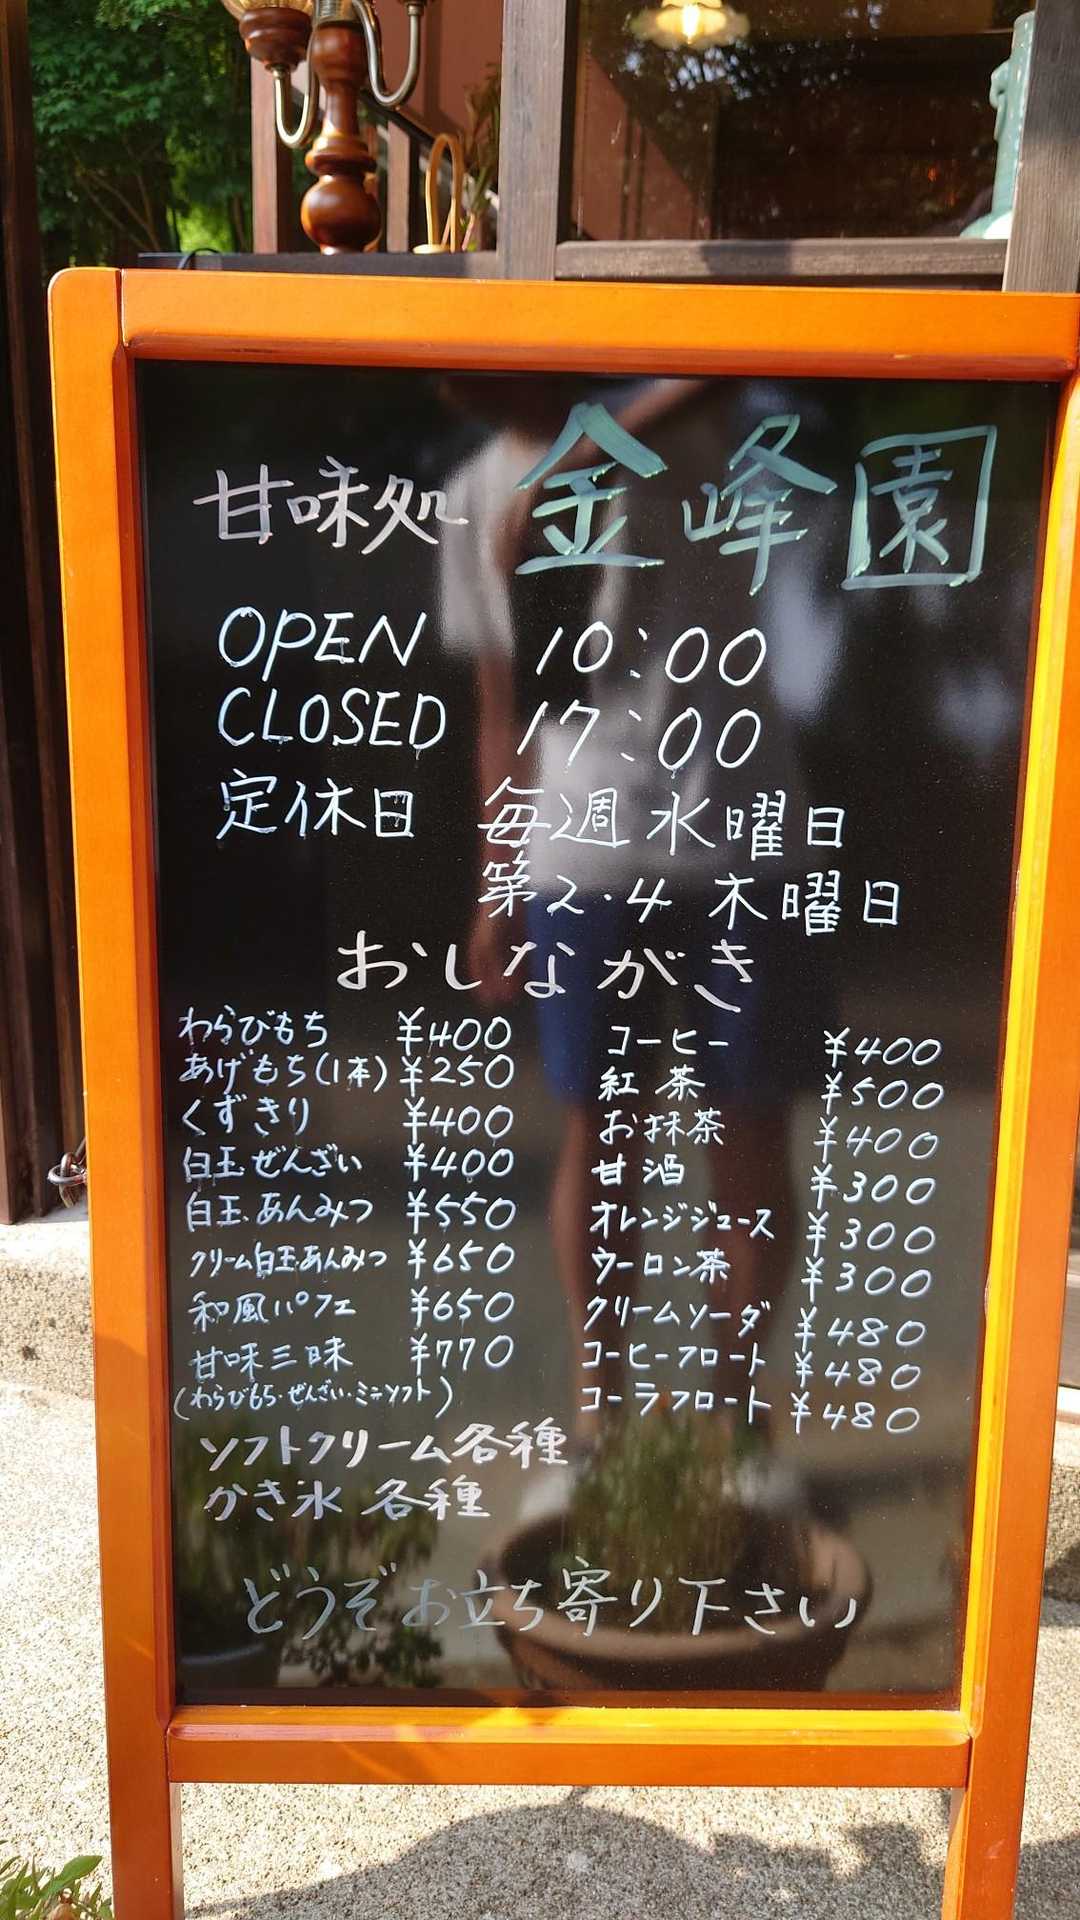 甘味処 金峰園
OPEN 10:00
CLOSED 17:00
定休日 毎週水曜日
第2・4 木曜日
おしながき
わらびもち ¥400
あげもち(1本) ¥250
くずきり ¥400
白玉ぜんざい ¥400
白玉あんみつ ¥550
クリーム白玉あんみつ ¥650
和風パフェ ¥650
甘味三昧 ¥770
(わらびもち・ぜんざい・ミニソフト)
コーヒー ¥400
紅茶 ¥500
お抹茶 ¥400
甘酒 ¥300
オレンジジュース ¥300
ウーロン茶 ¥300
クリームソーダ ¥480
コーヒーフロート ¥480
コーラフロート ¥480
ソフトクリーム各種
かき氷 各種
どうぞお立ち寄り下さい